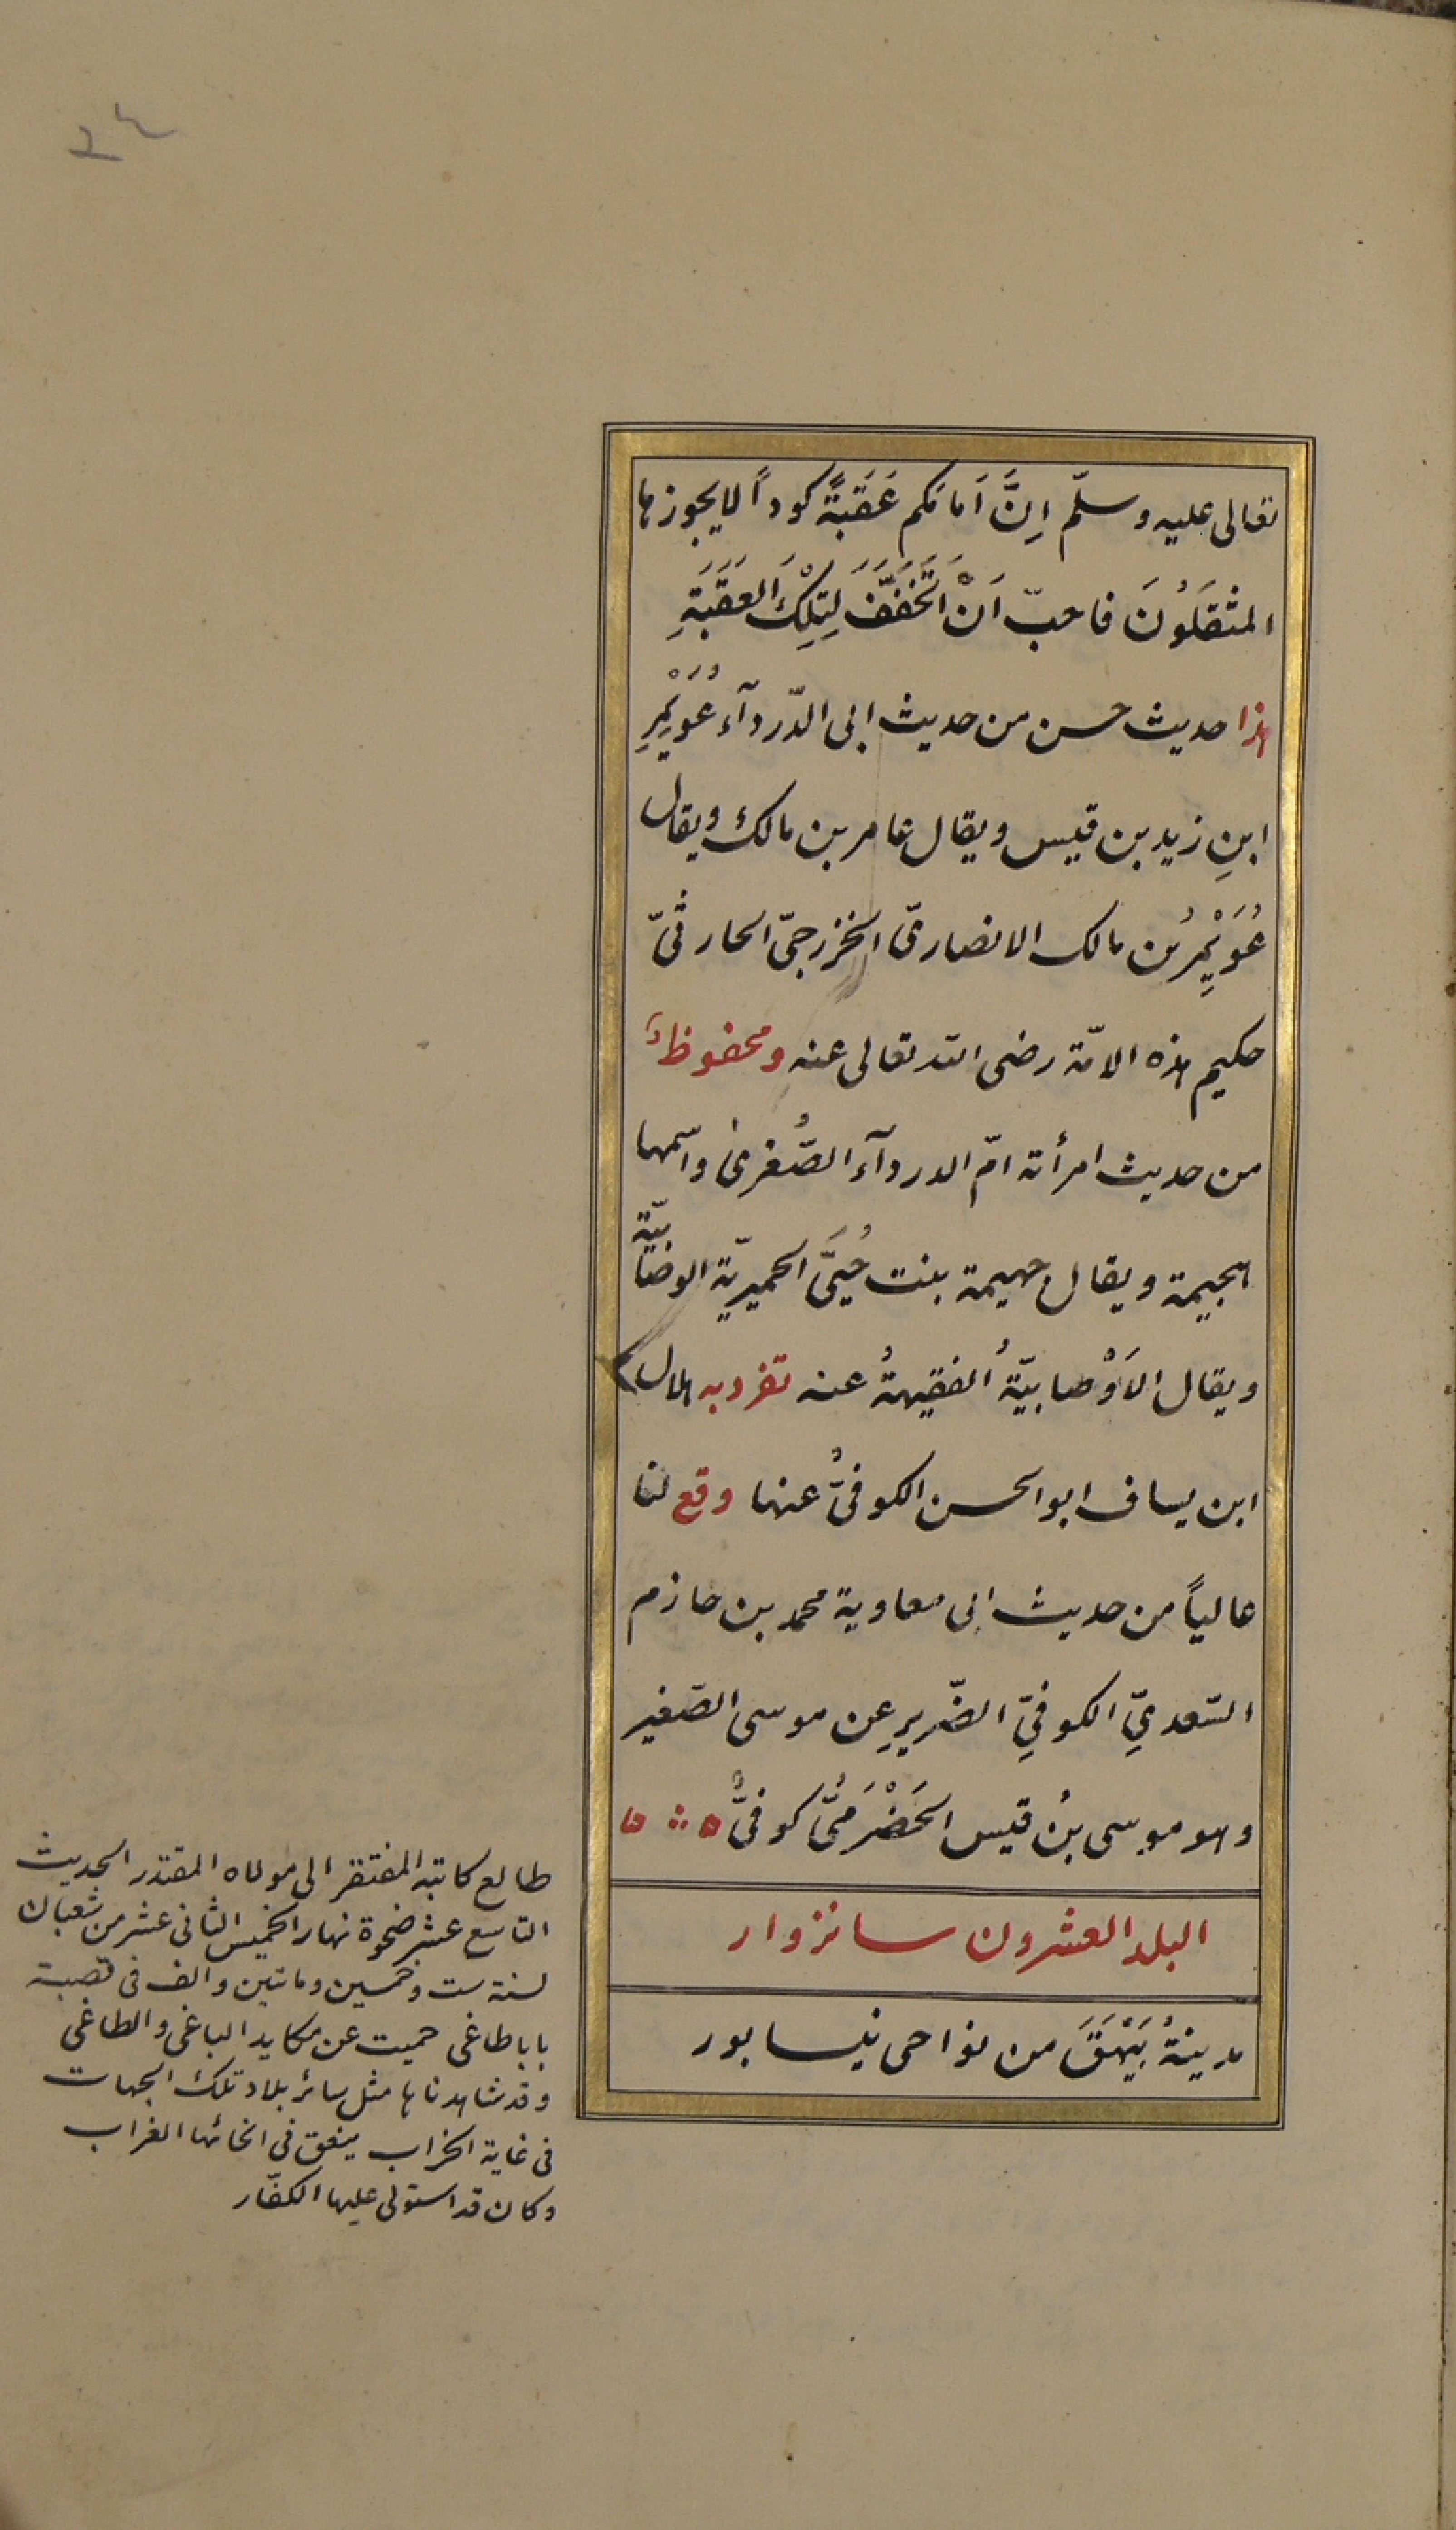 ٢٤
تعالى عليه وسلّم اِنَّ اَمامَكم عَقَبَةً كوداً لايجوزها
المثقَلُونَ فاحبّ اَنْ اَتَخَفَّفَ لِتِلْكَ العَقَبَةِ
هذا حديث حسن من حديث ابى الدّرداۤء عُوَيْمِرِ
ابنِ زيد بن قيس ويقال عامر بن مالك ويقال
عُوَيْمِرُ بن مالك الانصارىّ الخزرجىّ الحارثىّ
حكيم هذه الامّة رضى الله تعالى عنه ومحفوظٌ
من حديث امرأته امّ الدرداۤء الصُّغرى واسمها
هجيمة ويقال جهيمة بنت حُيَىَّ الحميريّة الوصّابيّة
ويقال الاَوْصابيّةُ الفقيهةُ عنه تفرد به هلال
ابن يساف ابوالحسن الكوفىُّ عنها وقع لنا
عالياً من حديث ابى معاوية محمد بن حازم
السّعدىِّ الكوفىِّ الضّريرِ عن موسى الصّغير
وهو موسى بنُ قيس الحَضْرَمىُّ كوفىٌّ
البلد العشرون سانزوار
مدينةُ بَيْهَقَ من نواحى نيسابور
طالع كاتبه المفتقر الى مولاه المقتدر الحديث
التاسع عشر ضحوة نهار الخميس الثانى عشر من شعبان
لسنة ست وخمسين وماتين والف فى قصبة
باباطاغى حميت عن مكايد الباغى والطاغى
وقد شاهدناها مثل سائر بلاد تلك الجهات
فى غاية الخراب ينعق فى انحائها الغراب
وكان قد استولى عليها الكفّار